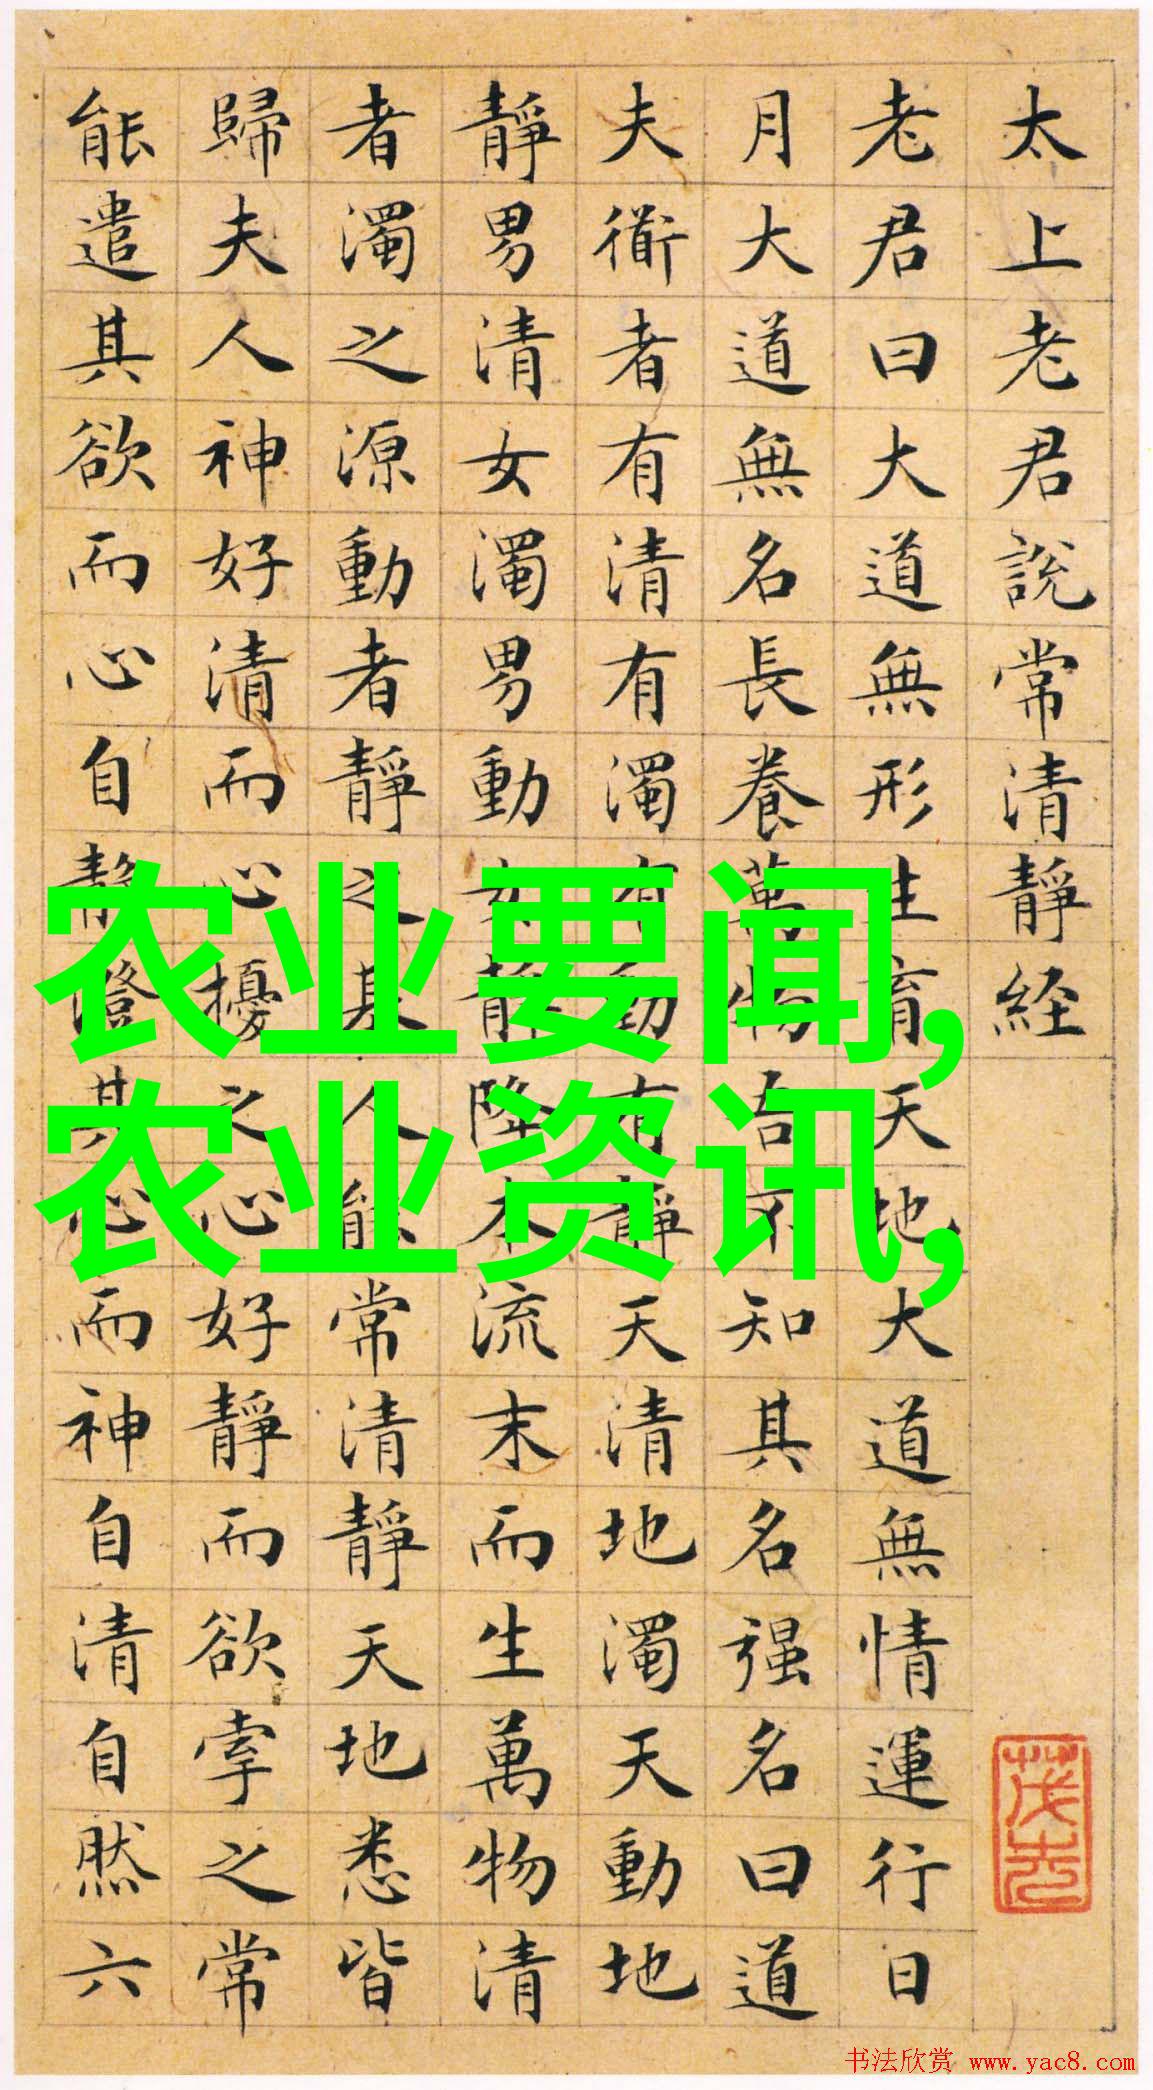 太上老君說常清靜経
老君曰大道無形生育天地大道無情運行日
月大道無名長養萬物吾不知其名强名曰道
夫衜者有清有濁有動有靜天清地濁天動地
靜男清女濁男動女靜降本流末而生萬物清
者濁之源動者靜之基人能常清靜天地悉皆
歸夫人神好清而心擾之心好靜而欲牽之常
能遣其欲而心自靜澄其心而神自清自然六
农业要闻,
农业资讯,
书法欣赏 www.yac8.com